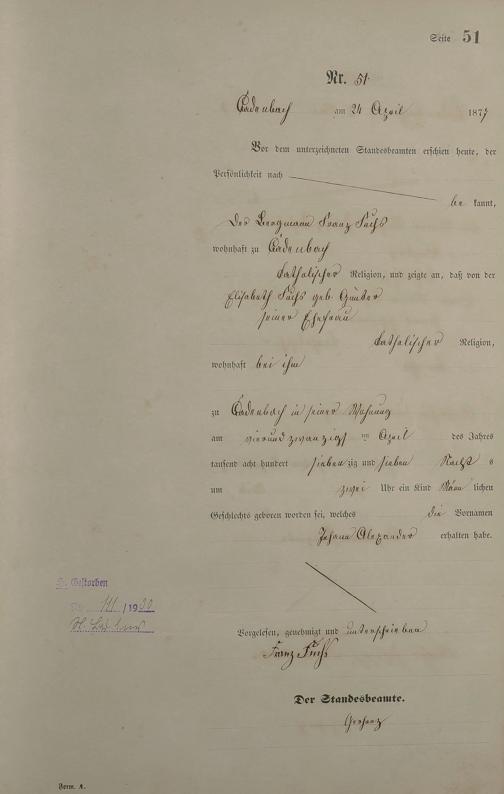 Seite 51
Nr. 51.
Cadenbach am 24 April 1877
Vor dem unterzeichneten Standesbeamten erschien heute, der
Persönlichkeit nach
be kannt,
der Bergmann Franz Fuchs
wohnhaft zu Cadenbach
katholischer Religion, und zeigte an, daß von der
Elisabeth Fuchs geb. Günter
seiner Ehefrau
katholischer Religion,
wohnhaft bei ihm
zu Cadenbach in seiner Wohnung
am vierundzwanzigst en April des Jahres
tausend acht hundert sieben zig und sieben Nachts
um zwei Uhr ein Kind männ lichen
Geschlechts geboren worden sei, welches die Vornamen
Johann Alexander erhalten habe.
Gestorben
/1930
Vorgelesen, genehmigt und unterschrieben
Franz Fuchs
Der Standesbeamte.
Form. A.